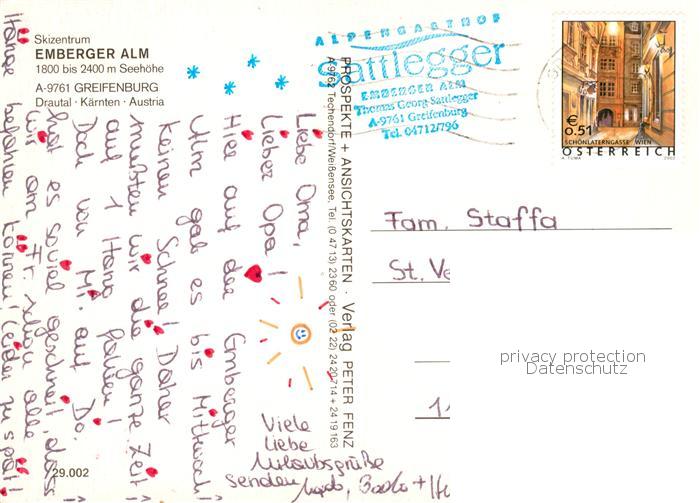 Skizentrum
EMBERGER ALM
1800 bis 2400 m Seehöhe
A-9761 GREIFENBURG
Drautal · Kärnten · Austria
ALPENGASTHOF
Sattlegger
EMBERGER ALM
Thomas Georg Sattlegger
A-9761 Greifenburg
Tel. 04712/796
€ 0.51
SCHÖNLATERNGASSE WIEN
ÖSTERREICH
A. TUMA 2002
PROSPEKTE + ANSICHTSKARTEN · Verlag PETER FENZ
A-9762 Techendorf/Weißensee, Tel. (0 47 13) 23 60 oder (02 22) 24 20 714 + 24 19 163
Liebe Oma,
Lieber Opa!
Hier auf der Emberger
Alm gab es bis Mittwoch
keinen Schnee! Daher
mußten wir die ganze Zeit
auf 1 Hang fahren!
Doch von Mi. auf Do.
hat es soviel geschneit, dass
wir am Fr. schon alle
Hänge befahren können! Leider zu spät!
Viele
liebe
Urlaubsgrüße
senden
Fam. Staffa
St. Ve
privacy protection
Datenschutz
29.002